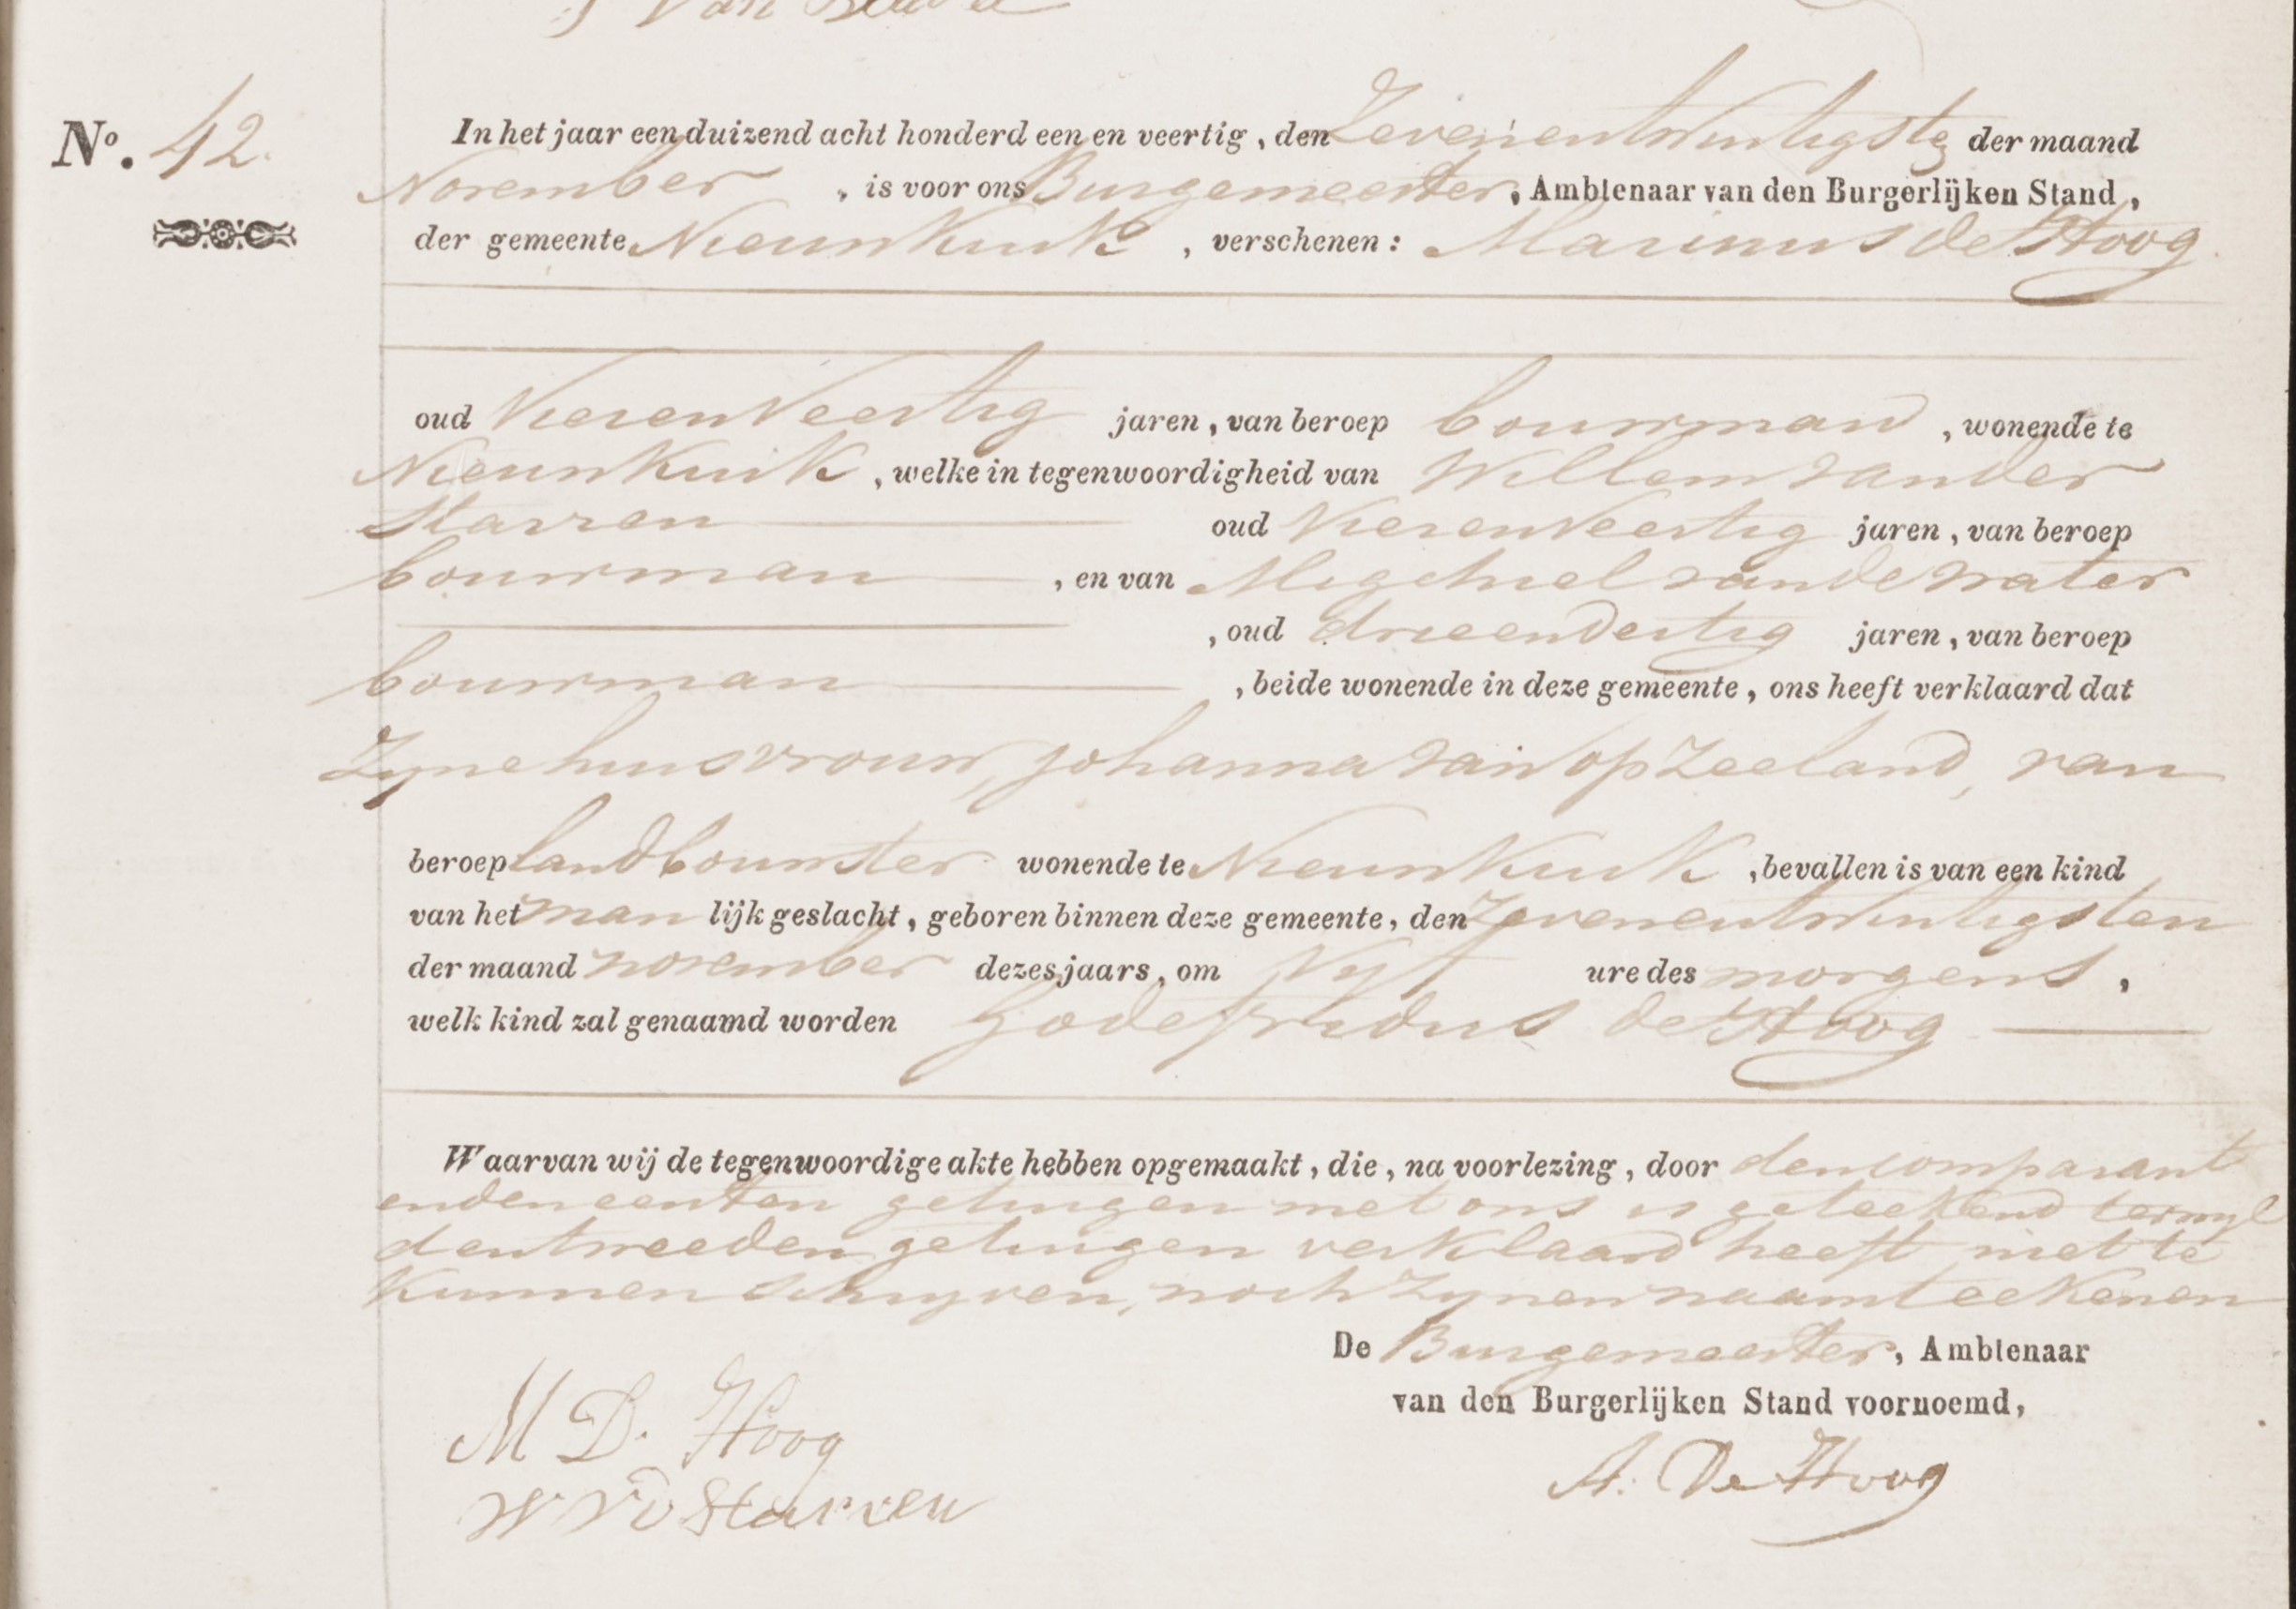 Van
No. 42.
In het jaar een duizend acht honderd een en veertig, den Zevenentwintigste der maand
November, is voor ons Burgemeester, Ambtenaar van den Burgerlijken Stand,
der gemeente Nieuwkuik, verschenen: Marinus de Hoog
oud Vierenveertig jaren, van beroep bouwman, wonende te
Nieuwkuik, welke in tegenwoordigheid van Willem vander
Starren oud Vierenveertig jaren, van beroep
bouwman, en van Migchiel vande water
, oud drieendertig jaren, van beroep
bouwman, beide wonende in deze gemeente, ons heeft verklaard dat
Zyne huisvrouw, johanna van op Zeeland, van
beroep landbouwster wonende te Nieuwkuik, bevallen is van een kind
van het manlijk geslacht, geboren binnen deze gemeente, den Zevenentwintigsten
der maand november dezes jaars, om Vyf ure des morgens,
welk kind zal genaamd worden Godefridus de Hoog
Waarvan wij de tegenwoordige akte hebben opgemaakt, die, na voorlezing, door den comparant
en den eersten getuigen met ons is geteekend terwyl
den tweeden getuigen verklaard heeft niet te
kunnen schryven, noch Zynen naam teekenen
De Burgemeester, Ambtenaar
van den Burgerlijken Stand voornoemd,
M D. Hoog
W V D Starren
A. De Hoog